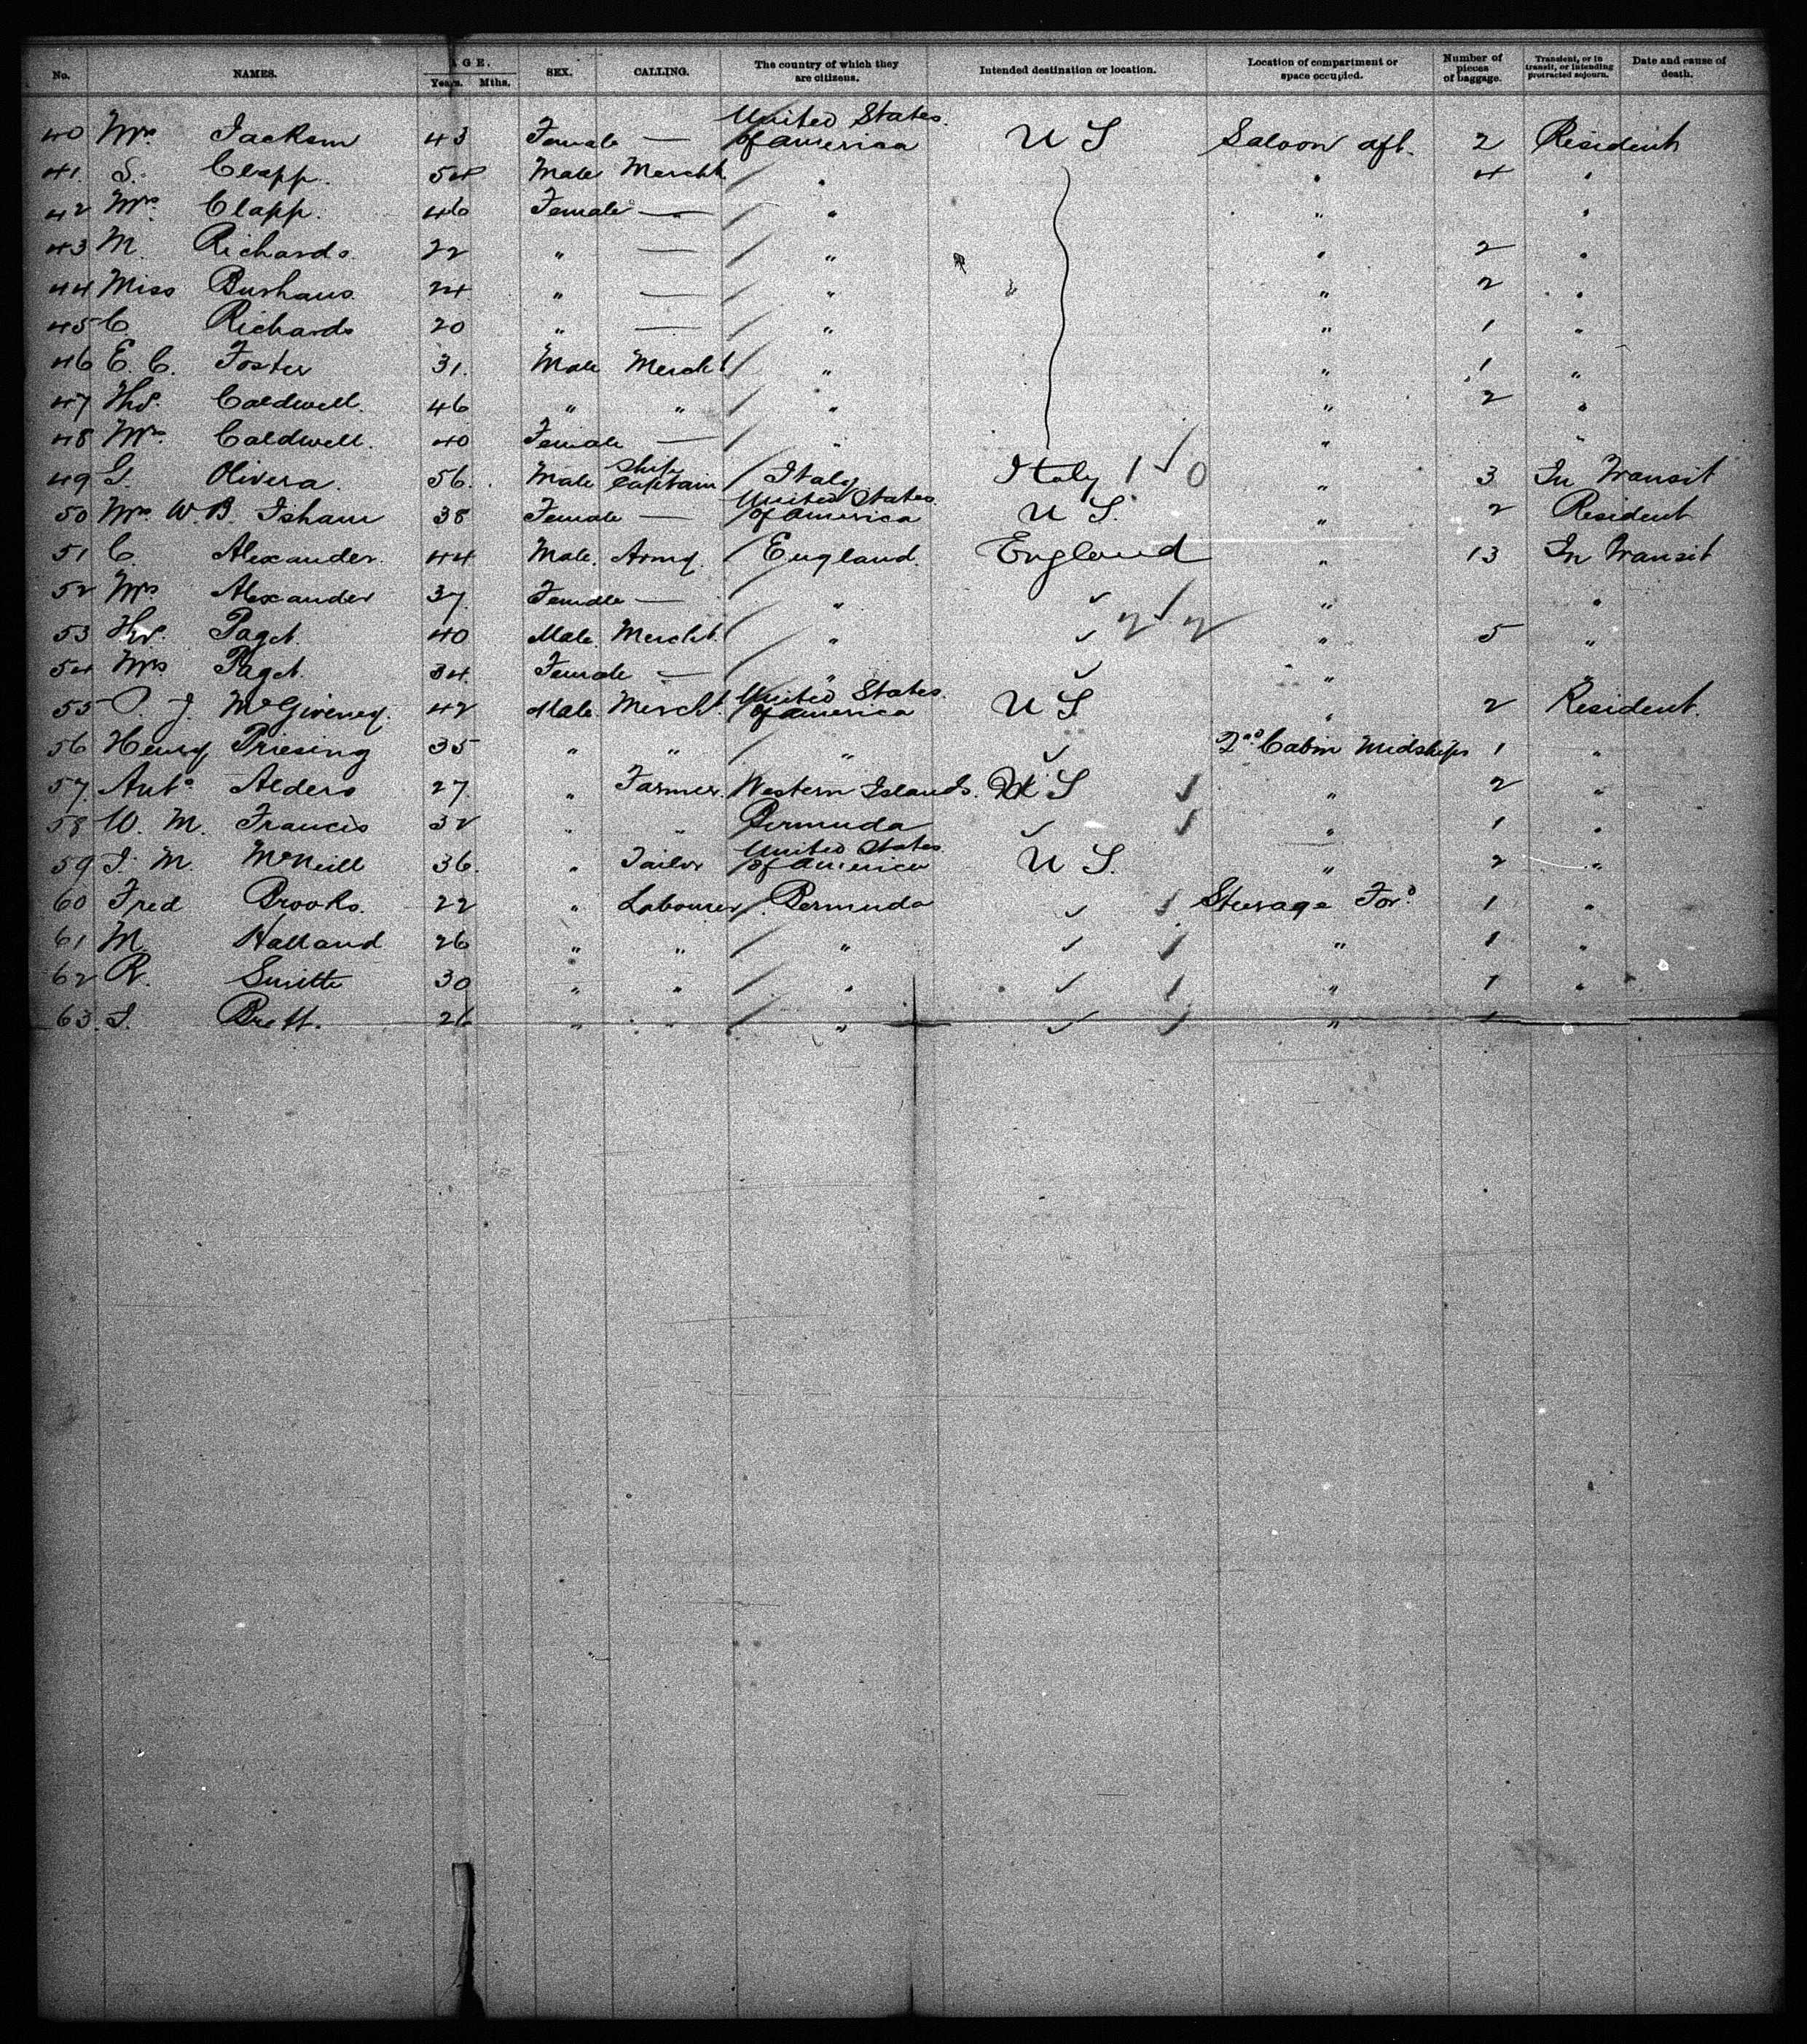 No. NAMES. AGE. Years. Mths. SEX. CALLING. The country of which they are citizens. Intended destination or location. Location of compartment or space occupied. Number of pieces of baggage. Transient, or in transit, or intending protracted sojourn. Date and cause of death.
40 Mrs Jackson 43 Female — United States of America U S Saloon aft. 2 Resident
41. S. Clapp. 54 Male Mercht " " 4 "
42 Mrs Clapp. 46 Female — " " "
43 M. Richards. 22 " — " " 2 "
44 Miss Burhaus. 24 " — " " 2 "
45 C. Richards 20 " — " " 1 "
46 E. C. Foster 31. Male Mercht " " 1 "
47 Caldwell. 46 " " " " 2 "
48 Mrs. Caldwell. 40 Female — " " "
49 G. Olivera. 56. Male Ship Captain Italy Italy 1 0 " 3 In Transit
50 Mrs W. B. Isham 38 Female — United States of America U S. " 2 Resident
51 C. Alexander. 44 Male. Army. England. England " 13 In Transit
52 Mrs Alexander 37. Female — " ✓ " "
53 Paget. 40 Male. Mercht. " ✓ " 5 "
54 Mrs Paget. 34. Female — " ✓ " "
55 P. J. McGiveney. 42 Male. Mercht. United States of America U S. " 2 Resident.
56 Henry Priesing 35 " " " ✓ 2nd Cabin Midships 1 "
57. Anto Alders 27 " Farmer. Western Islands. U S " 2 "
58 W. M. Francis 32 " " Bermuda ✓ " 1 "
59 J. M. McNeill 36. " Tailor United States of America U S. " 2 "
60 Fred Brooks. 22 " Labourer Bermuda ✓ Steerage Ford 1 "
61 M. Halland 26 " " " ✓ " 1 "
62 R. Smith 30 " " " ✓ " 1 "
63. J. Brett. 26 " " " ✓ " 1